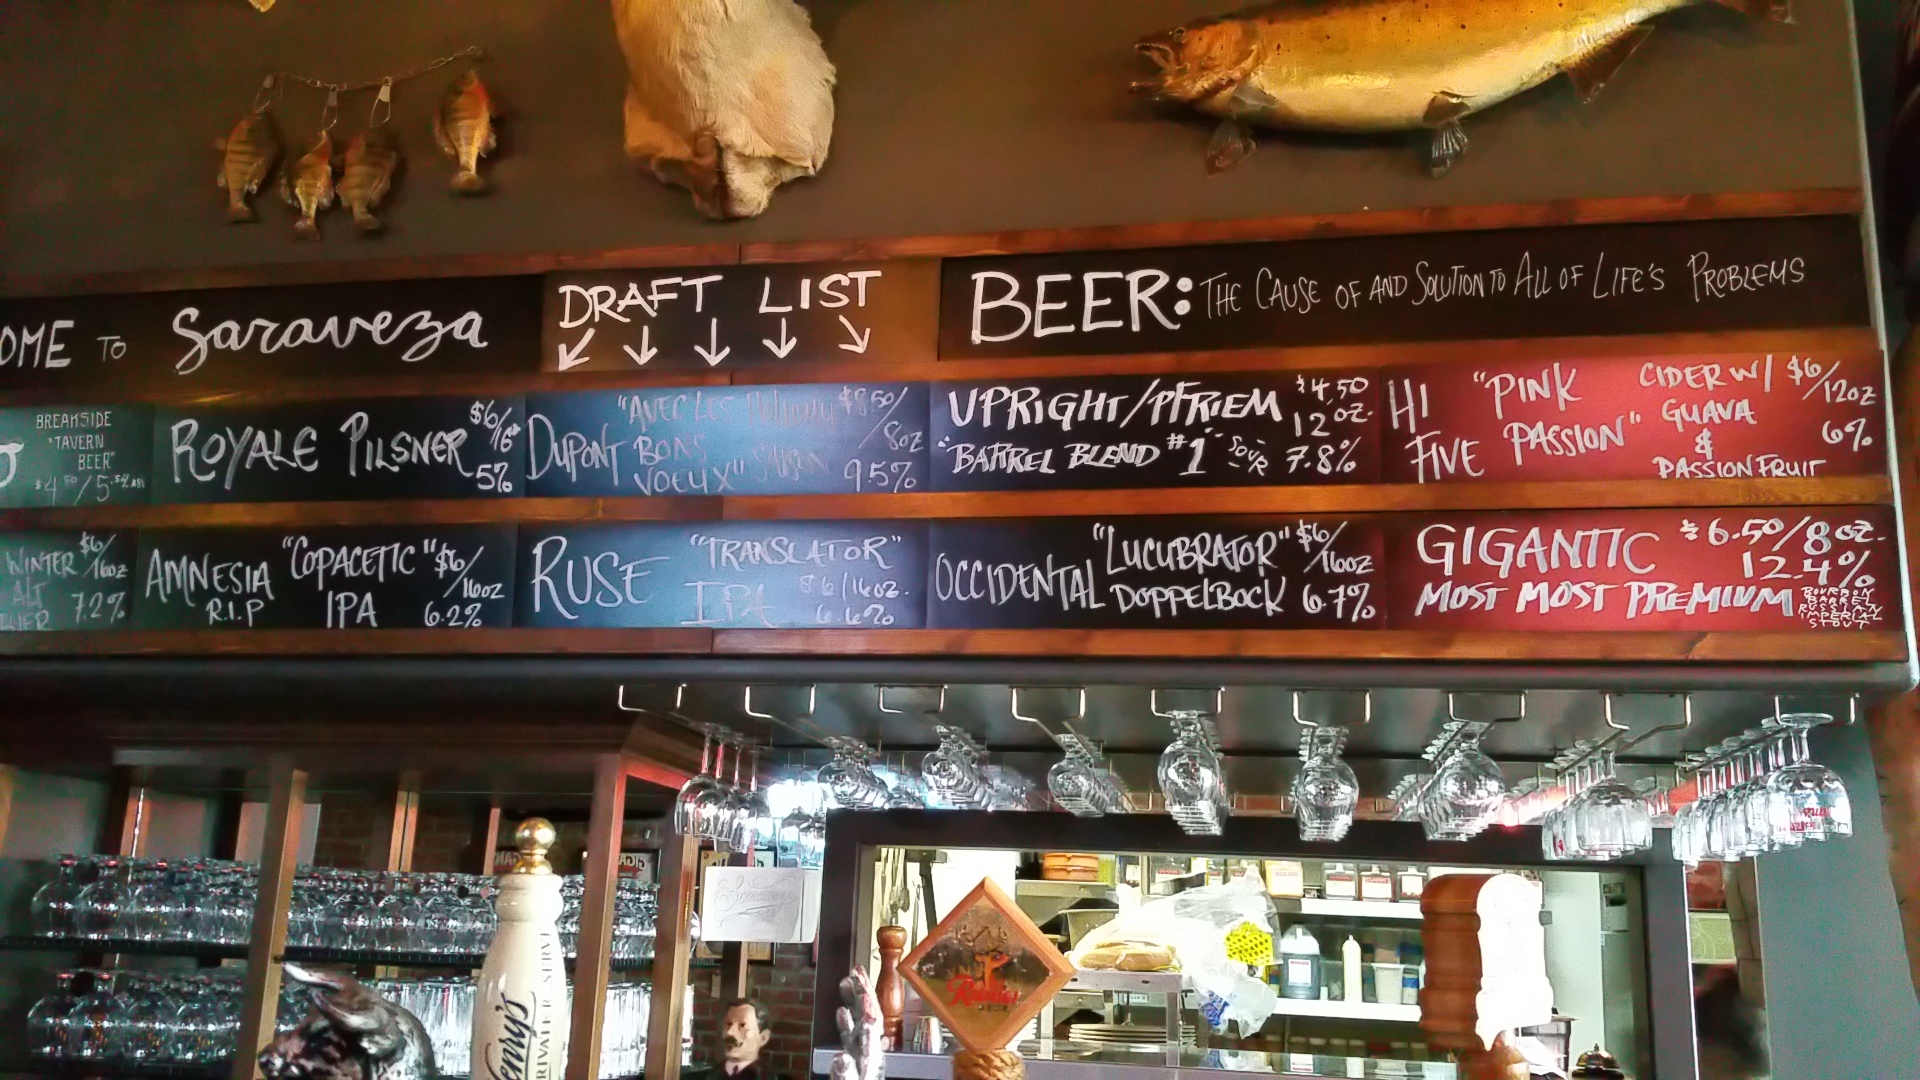 OME TO Saraveza
DRAFT LIST
BEER: THE CAUSE OF AND SOLUTION TO ALL OF LIFE'S PROBLEMS
BREAKSIDE
"TAVERN
BEER"
$4.50/5.5% ABV
ROYALE PILSNER $6/16oz
5%
DUPONT "AVEC LES $8.50/8oz
BONS
VOEUX" SAISON 9.5%
UPRIGHT/PFRIEM $4.50
12oz.
"BARREL BLEND #1" SOUR 7.8%
HI FIVE "PINK PASSION"
CIDER W/ GUAVA & PASSIONFRUIT
$6/12oz
6%
WINTER $6/16oz
ALT
7.2%
AMNESIA "COPACETIC" $6/16oz
R.I.P IPA 6.2%
RUSE "TRANSLATOR"
IPA $6/16oz.
6.6%
OCCIDENTAL "LUCUBRATOR" $6/16oz
DOPPELBOCK 6.7%
GIGANTIC $6.50/8oz.
12.4%
MOST MOST PREMIUM
BOURBON
BARREL
RUSSIAN
IMPERIAL
STOUT
Henry's
PRIVATE RESERVE
Rainier